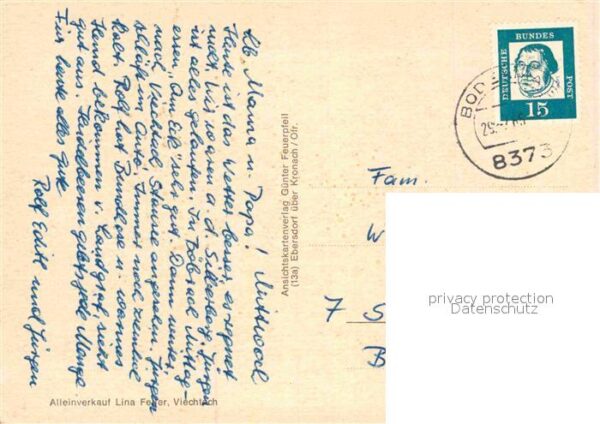 Lb. Mama u. Papa! Mittwoch
Heute ist das Wetter besser, es regnet
nicht, wir waren a. d. Silberberg. Jürgen
ist alles gelaufen. In Töbrach Mittag-
essen „Am Eck" sehr gut. Dann weiter
nach Viechtach Stimme angesehen. Jürgen
schläft im Auto. Immer noch ziemlich
kalt. Rolf hat Bundhose u. warmes
Hemd bekommen v. Landgraf, sieht
gut aus. Heidelbeeren gibts jede Menge.
Für heute alles Gute
Rolf Edith und Jürgen
Ansichtskartenverlag Günter Feuerpfeil
(13a) Ebersdorf über Kronach/Ofr.
Alleinverkauf Lina Feyer, Viechtach
DEUTSCHE BUNDES POST
15
BOD
8373
Fam.
W
7 S
B
privacy protection
Datenschutz